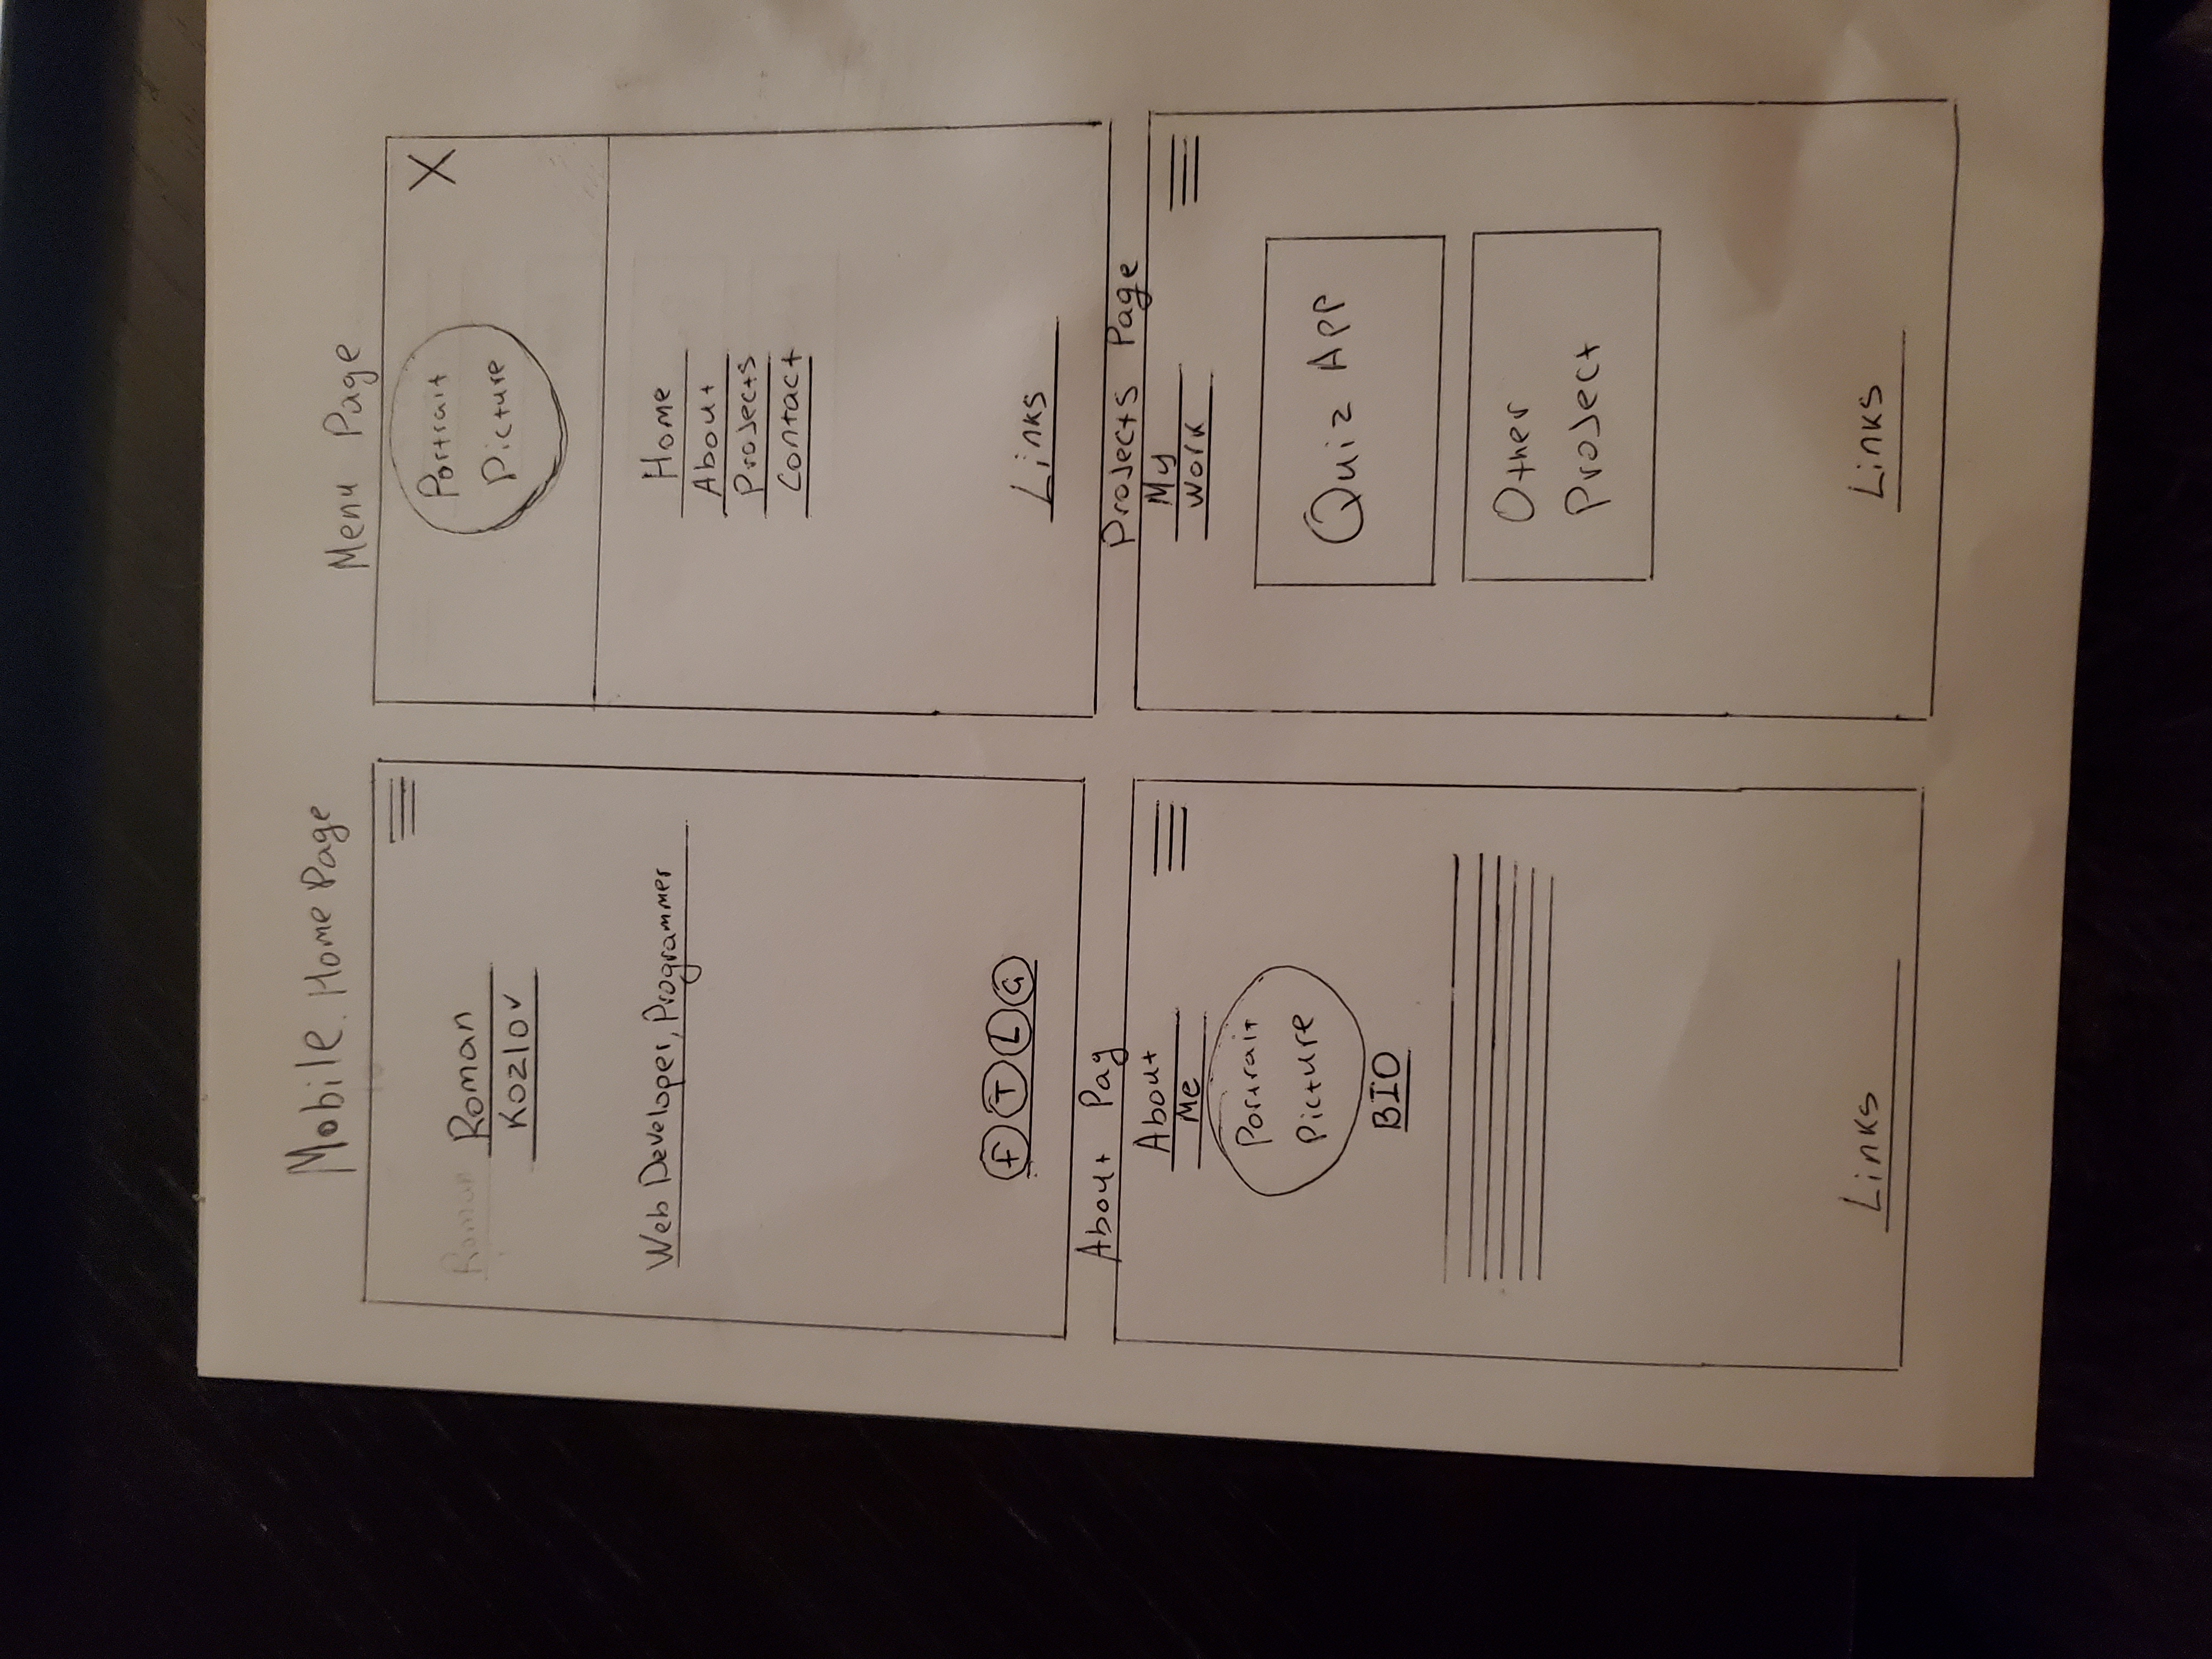 Mobile. Home Page
Roman Roman
Kozlov
Web Developer, Programmer
F T L G
Menu Page
Portrait
Picture
X
Home
About
Projects
Contact
Links
About Pag
About
Me
Portrait
Picture
BIO
Links
Projects Page
My
Work
Quiz App
Other
Project
Links